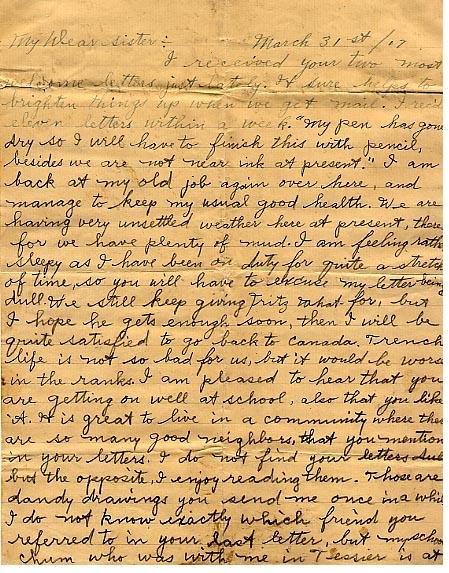 My Dear sister: March 31st/17
I received your two most
welcome letters just lately. It sure helps to
brighten things up when we get mail. I rec'd
eleven letters within a week. "My pen has gone
dry so I will have to finish this with pencil,
besides we are not near ink at present." I am
back at my old job again over here, and
manage to keep my usual good health. We are
having very unsettled weather here at present, there
for we have plenty of mud. I am feeling rath
sleepy as I have been on duty for quite a stretch
of time, so you will have to excuse my letter being
dull. We still keep giving Fritz what for, but
I hope he gets enough soon, then I will be
quite satisfied to go back to Canada. Trench
life is not so bad for us, but it would be worse
in the ranks. I am pleased to hear that you
are getting on well at school, also that you like
it. It is great to live in a community where there
are so many good neighbors, that you mention
in your letters. I do not find your letters dul
but the opposite, I enjoy reading them. Those are
dandy drawings you send me once in a whil
I do not know exactly which friend you
referred to in your last letter, but my school
chum who was with me in Tessier is at